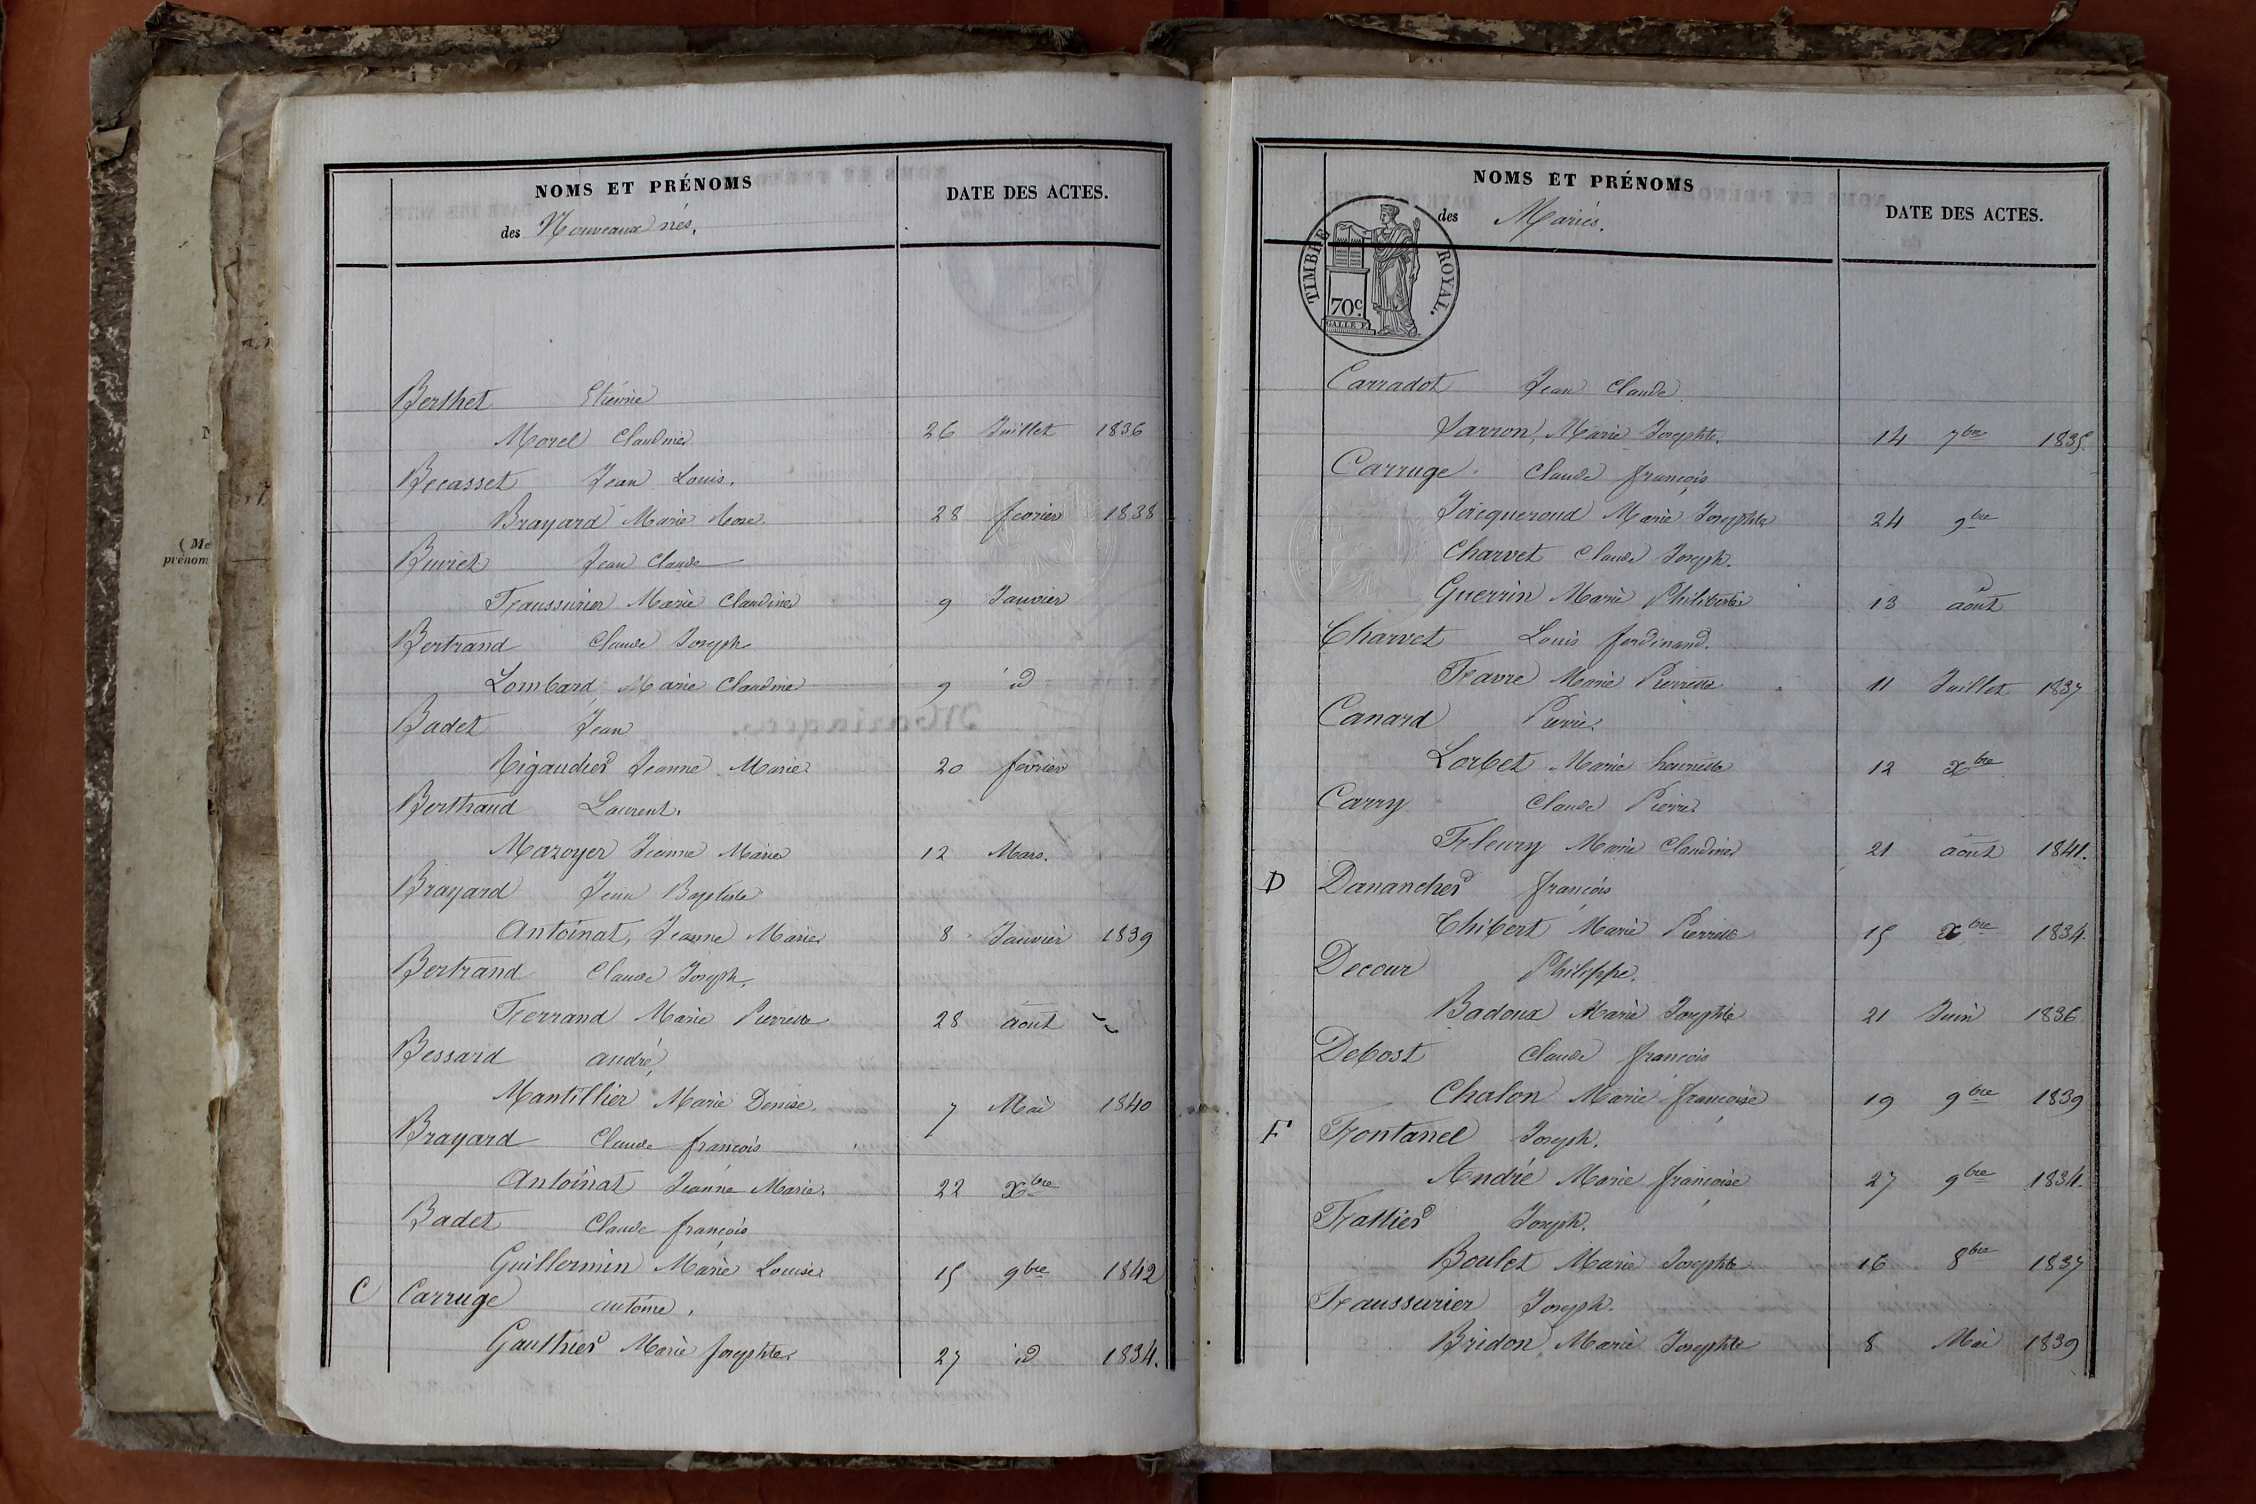 NOMS ET PRÉNOMS
des Nouveaux nés.
DATE DES ACTES.
Berthet Etienne
Morel Claudine 26 Juillet 1836
Becasset Jean Louis.
Brayard Marie Rose 28 fevrier 1838
Buviet Jean Claude
Faussurier Marie Claudine 9 Janvier
Bertrand Claude Joseph
Lombard, Marie Claudine 9 id
Badet Jean
Rigaudier Jeanne Marie 20 fevrier
Berthaud Laurent.
Mazoyer Jeanne Marie 12 Mars.
Brayard Jean Baptiste
Antoinat, Jeanne Marie 8 Janvier 1839
Bertrand Claude Joseph.
Ferrand Marie Pierrette 28 août
Bessard andré,
Mantillier Marie Denise. 7 Mai 1840
Brayard Claude françois
Antoinat Jeanne Marie. 22 xbre
Badet Claude françois
Guillermin Marie Louise 15 9bre 1842
C Carruge antoine.
Gauthier Marie Josephte 27 id 1834.
(Me
prénom
NOMS ET PRÉNOMS
des Mariés.
DATE DES ACTES.
TIMBRE ROYAL.
70c.
Carradot Jean Claude
Sarron, Marie Josephte. 14 7bre 1835.
Carruge Claude françois
Jacqueroud Marie Josephte 24 9bre
Charvet Claude Joseph.
Guerrin Marie Philiberte 13 août
Charvet Louis ferdinand.
Favre Marie Pierrette 11 Juillet 1837
Canard Pierre.
Lorbet Marie henriette 12 xbre
Carry Claude Pierre
Fleury Marie Claudine 21 août 1841.
D Danancher françois
Thibert Marie Pierrette 15 xbre 1834.
Decour Philippe.
Badoux Marie Josephte 21 Juin 1836
Debost Claude françois
Chalon Marie françoise 19 9bre 1839
F Fontanel Joseph.
André Marie françoise 27 9bre 1834.
Fattier Joseph.
Boulet Marie Josephte 16 8bre 1837
Faussurier Joseph.
Bridon Marie Josephte 8 Mai 1839